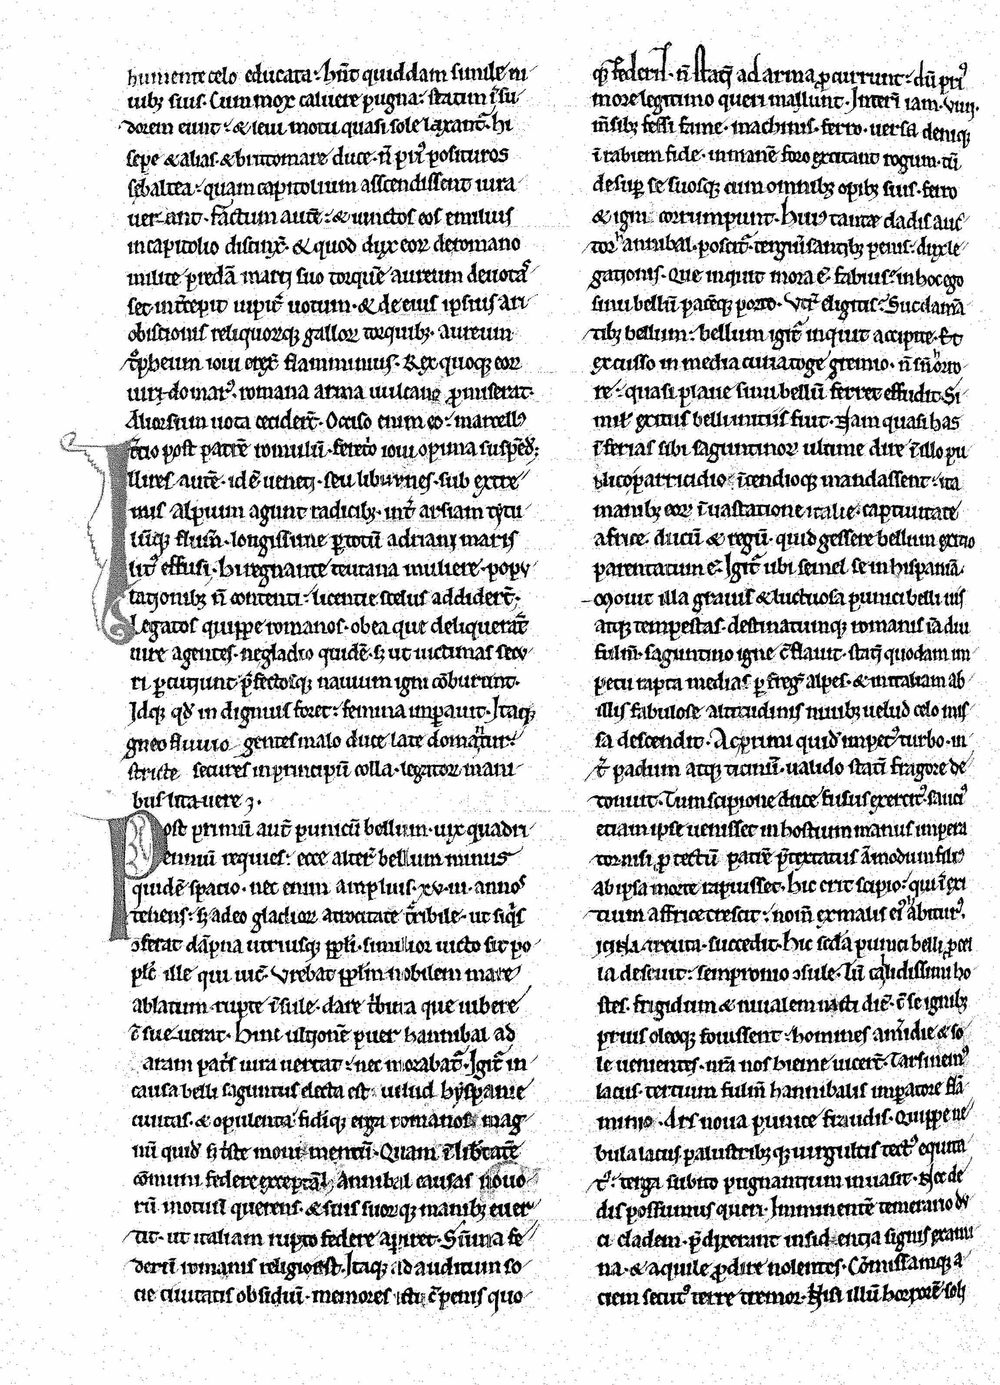 humente celo educata · hn̄t quiddam simile ni
uibꝫ suis · Cum mox caluere pugna · statim ī su
dorem eunt · & leui motu quasi sole laxant̄ · hi
sepe & alias · & brittomare duce · n̄ pri᷒ posituros
se baltea · quam capitolium asscendissent iura
uerant · factum aute᷒ · & uinctos eos emilius
in capitolio discinx̄ · & quod dux eoꝝ de romano
milite predā marti suo torquē aureum deuota᷒
set · int̄cepit iupit̄ uotum · & de eius ipsius ari
obistionis reliquorūqꝫ galloꝝ torquibꝫ · aureum
t̄pheum ioui erex̄ flamminius · Rex quoqꝫ eoꝝ
uiridomar᷒ · romana arma uulcano ꝓmiserat ·
Aliorsum uota cecider̄t · Occiso enim eo · marcell᷒
t̄cio post patrē romulū · feret̄o ioui opima suspēd;
Illires autē · idē ueneti · seu liburnes · sub extre
mis alpium agunt radicibꝫ · int̄ arsiam tytu
lūqꝫ flum̄ · longissime p totū adriani maris
lit᷒ effusi · hi regnante teutana muliere · popu
lationibꝫ n̄ contenti · licentie scelus addider̄t ·
Legatos quippe romanos · ob ea que deliquerāt
iure agentes · ne gladio quidē · sꝫ ut uictimas secu
ri ꝑcutiunt p̄fectosqꝫ nauium igni cōburunt ·
Idqꝫ qd̄ indignius foret · femina imperauit · Itaqꝫ
gneo fluuio gentes malo duce late domātur ·
stricte secures in principiū colla · legatoꝝ mani
bus litauere ·
Post primū aut̄ punicū bellum · uix quadri
enniū requies · ecce alter᷒ bellum minus
quidē spatio · nec enim amplius · xv · iii · annos
tenens · sꝫ adeo gladioꝝ atrocitate t̄ribile · ut siqs̄
ꝯferat dāpna utriusqꝫ ppl̄i · similior uicto sit po
pl̄s ille qui uic̄ · Vrebat ppl̄m nobilem mare
ablatum · rapte īsule · dare t̄buta que iubere
c̄sueuerat · Hinc ultionē puer hannibal ad
aram pat̄s iurauertat · nec morabat̄ · Igit̄ in
causa belli saguntus electa est · uelud hyspanie
ciuitas · & opulenta · fidiqꝫ erga romanos · mag
nū quid sꝫ t̄ste monimentū · Quam ī lib̄tatē
cōmuni federe exceptā hannibal causas nouo
rū motuū querens · & suis suorqꝫ manibꝫ euer
tit · ut italiam rupto federe apiret · Sūma fe
derū romanis religio est · Itaqꝫ ad auditum so
cie ciuitatis obsidiū · memores icti c̄ penis quo
qꝫ federis · n̄ statī ad arma ꝓcurrunt · dū pri᷒
more legitimo queri mallunt · Interī iam · viiij ·
m̄sibꝫ fessi fame · machinis · ferro · uersa deniqꝫ
ī rabiem fide · inmanē foro excitant rogum · tū
desuꝑ se suosqꝫ cum omnibꝫ opibꝫ suis · ferro
& igni corrumpunt · hui᷒ tante cladis auc
tor hannibal poscit̄ · tergiūsantibꝫ penis · dux le
gationis · Que inquit mora ē · fabius · in hoc ego
sinu bellū pacēqꝫ porto · Vt̄ eligitis · Succlamā
tibꝫ bellum · bellum igit̄ inquit accipite · Et
excusso in media curia toge gremio · n̄ sn̄ horro
re · quasi plane sinu bellū ferret effudit · Si
mil᷒ exitus belli initiis fuit · Nam quasi has
īferias sibi saguntinoꝝ ultime dire ī illo pu
blico parricidio · īcendioqꝫ mandassent · ita
manibꝫ eoꝝ ī uastatione italie · captiuitate
africe · ducū & regū · qui id gessere bellum exitio
parentatum ē · Igit̄ ubi semel se in hispaniā ·
mouit illa grauis & luctuosa punici belli uis
atqꝫ tempestas · destinatumqꝫ romanis iā diu
fulm̄ · saguntino igne c̄flauit · statī quodam im
petu rapta medias ꝑfreḡ alpes · & in italiam ab
illis fabulose altitudinis niuibꝫ uelud celo mis
sa descendit · Ac primi quid̄ impet᷒ turbo · in
t̄ padum atqꝫ ticinū · ualido statī fragore de
tonuit · Tum scipione duce fusus exercit᷒ · sauci᷒
etiam ipse uenisset in hostium manus impera
tor nisi ꝓtectū patrē p̄textatus āmodum fili᷒
ab ipsa morte rapiusset · Hic erit scipio · qui ī exi
tium affrice crescit · nom̄ ex malis ei᷒ habitur᷒ ·
ticino trenia · succedit · Hic scd̄a punici belli ꝓcel
la deseuit · sempronio ꝯsule · Tū callidissimi ho
stes · frigidum & niualem nacti diē · c̄ se ignibꝫ
prius oleoqꝫ fouissent · homines a m̄idie & so
le uenientes · nr̄a nos hieme uicer̄t · Tarsimen᷒
lacus · tercium fulm̄ hannibalis imꝑatore flā
minio · Ars noua punice fraudis · Quippe ne
bula lacus palustribꝫqꝫ uirgultis tect᷒ equita
t᷒ · terga subito pugnantium inuasit · Nec de
dis possumus queri · Imminentē temerario du
ci cladem · p̄dixerant insidentia signis exami
na · & aquile ꝓdire nolentes · Cōmissamqꝫ a
ciem secut᷒ terre tremor · Nisi illū horrorē soli